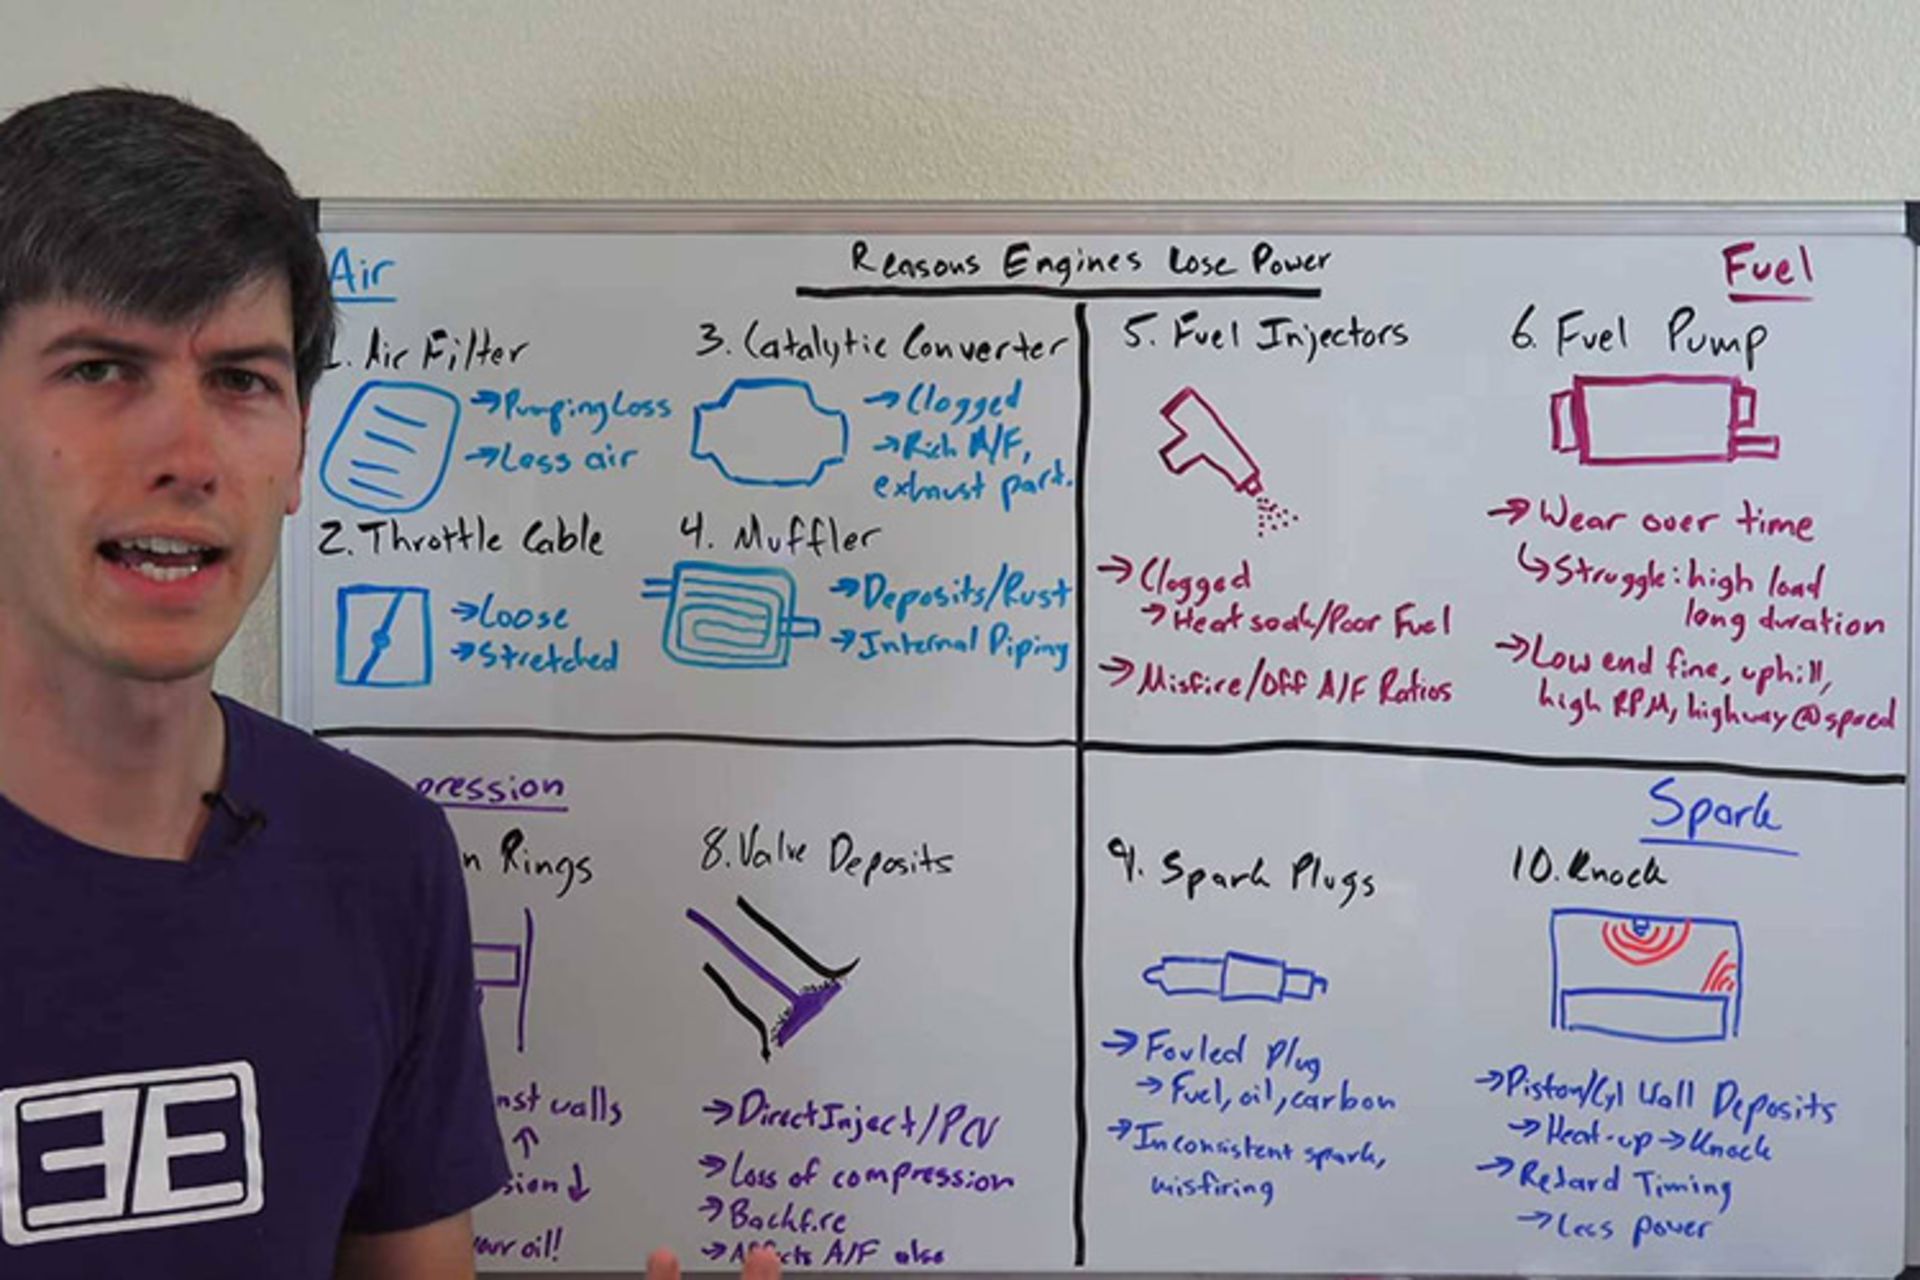 Reasons Engines Lose Power
Air
1. Air Filter
→Pumping Loss
→Less air
2. Throttle Cable
→Loose
→Stretched
3. Catalytic Converter
→Clogged
→Rich A/F,
exhaust part.
4. Muffler
→Deposits/Rust
→Internal Piping
Fuel
5. Fuel Injectors
→Clogged
→Heat soak/Poor Fuel
→Misfire/Off A/F Ratios
6. Fuel Pump
→Wear over time
↳Struggle: high load
long duration
→Low end fine, uphill,
high RPM, highway@speed
pression
n Rings
nst walls
↑
sion↓
your oil!
8. Valve Deposits
→Direct Inject/PCV
→Loss of compression
→Backfire
→Affects A/F also
Spark
9. Spark Plugs
→Fouled Plug
→Fuel, oil, carbon
→Inconsistent spark,
misfiring
10. Knock
→Piston/Cyl Wall Deposits
→Heat-up→Knock
→Retard Timing
→Less power
EE